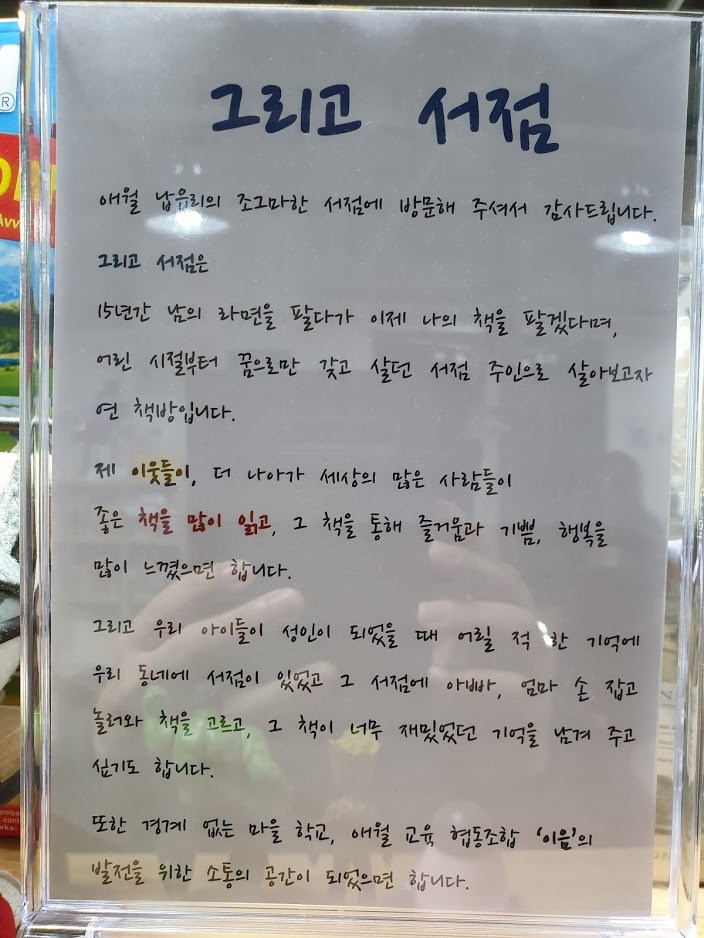 그리고 서점
애월 납읍리의 조그마한 서점에 방문해 주셔서 감사드립니다.
그리고 서점은
15년간 남의 라면을 팔다가 이제 나의 책을 팔겠다며,
어린 시절부터 꿈으로만 갖고 살던 서점 주인으로 살아보고자
연 책방입니다.
제 이웃들이, 더 나아가 세상의 많은 사람들이
좋은 책을 많이 읽고, 그 책을 통해 즐거움과 기쁨, 행복을
많이 느꼈으면 합니다.
그리고 우리 아이들이 성인이 되었을 때 어릴 적 한 기억에
우리 동네에 서점이 있었고 그 서점에 아빠, 엄마 손 잡고
놀러와 책을 고르고, 그 책이 너무 재밌었던 기억을 남겨 주고
싶기도 합니다.
또한 경계 없는 마을 학교, 애월 교육 협동조합 '이음'의
발전을 위한 소통의 공간이 되었으면 합니다.